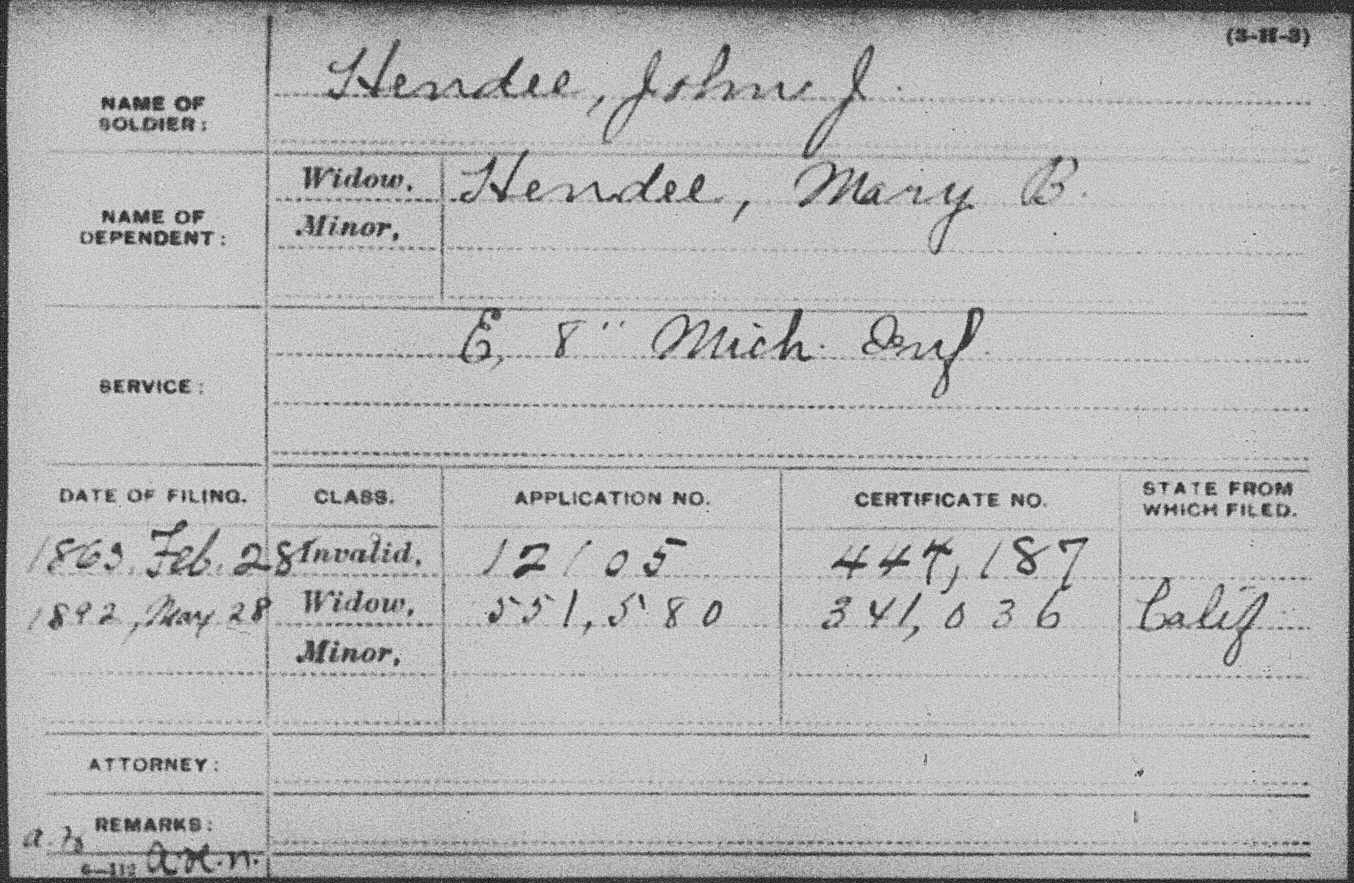 (3-H-3)
NAME OF SOLDIER: Hendee, John J.
NAME OF DEPENDENT: Widow, Hendee, Mary B.
Minor,
SERVICE: E, 8" Mich. Inf.
DATE OF FILING. CLASS. APPLICATION NO. CERTIFICATE NO. STATE FROM WHICH FILED.
1863. Feb. 28 Invalid, 12105 444,187
1892, May 28 Widow, 551,580 341,036 Calif
Minor,
ATTORNEY:
REMARKS:
6—112